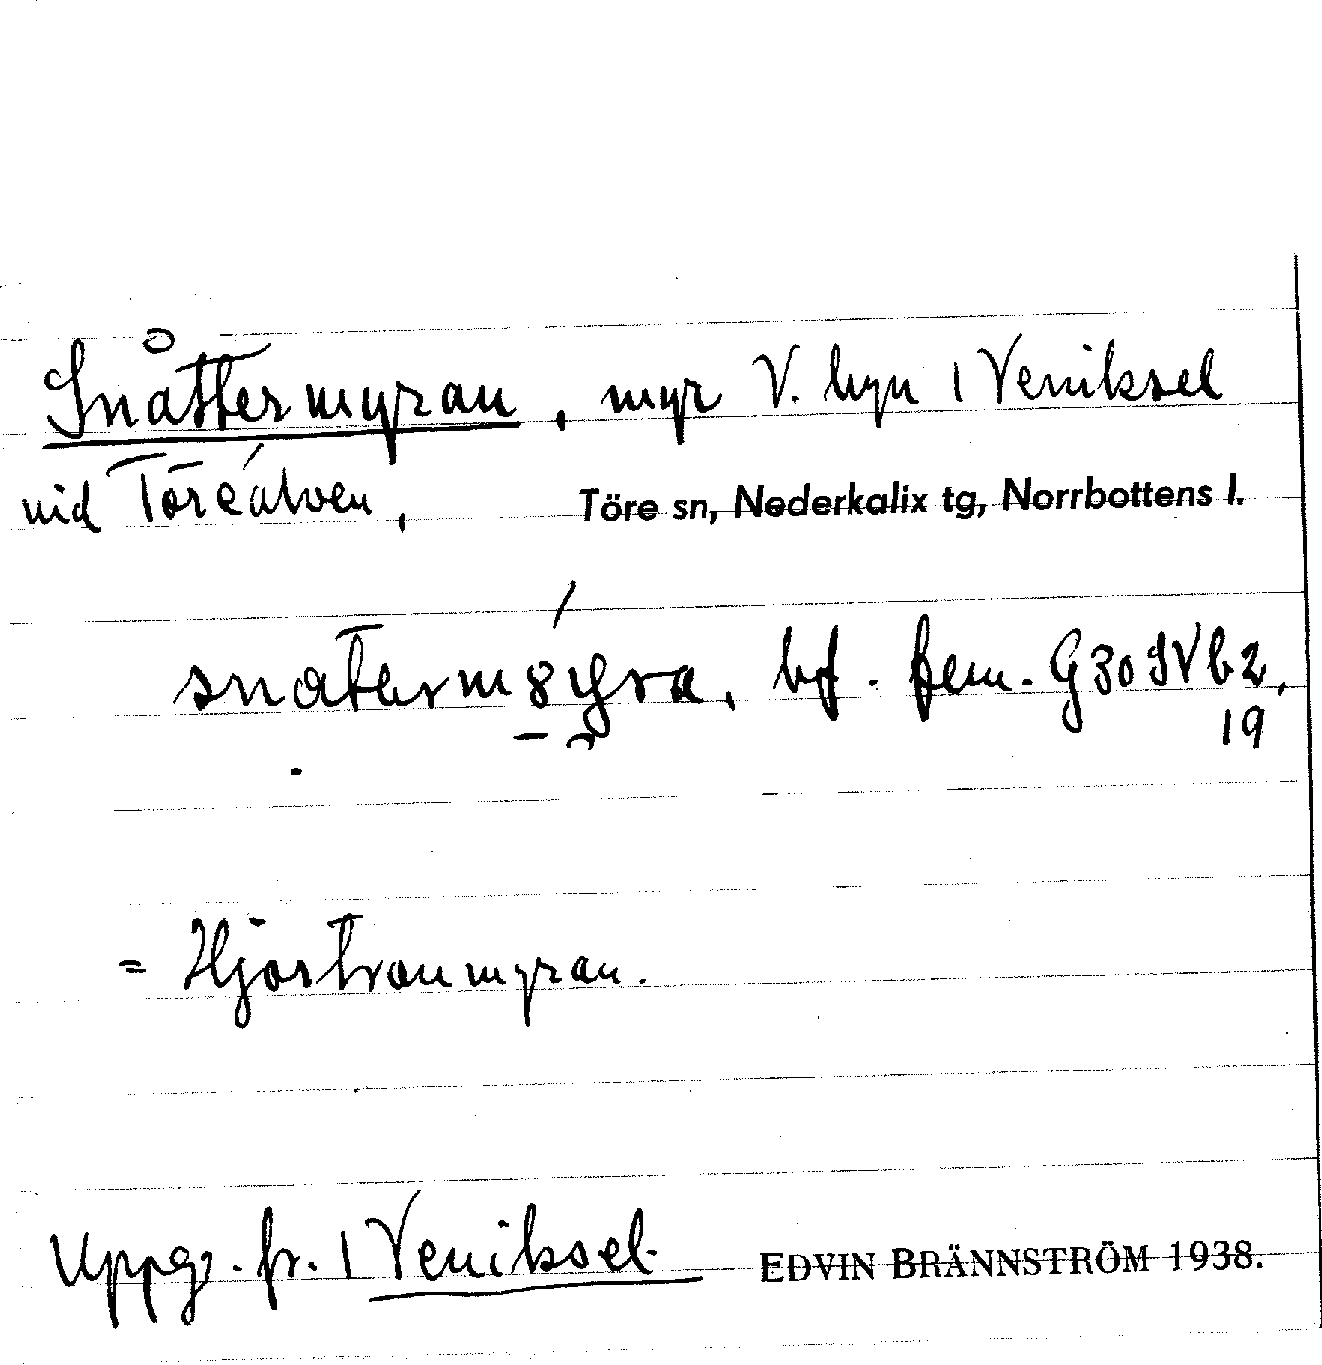 Snåttermyran, myr V. byn 1 Veniksel
vid Töreälven, Töre sn, Nederkalix tg, Norrbottens l.
bf. fem. G30 IV b2,
19
= Hjortronmyran.
Uppg. fr. 1 Veniksel. EDVIN BRÄNNSTRÖM 1938.